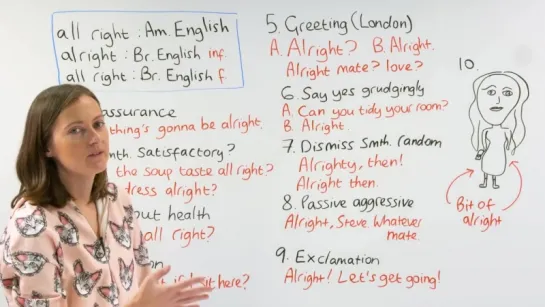 all right : Am. English
alright : Br. English inf.
all right : Br. English f.
assurance
thing's gonna be alright.
Smth. Satisfactory?
the soup taste all right?
dress alright?
out health
all right?
on
it here?
5. Greeting (London)
A. Alright? B. Alright.
Alright mate? love?
6. Say yes grudgingly
A. Can you tidy your room?
B. Alright
7. Dismiss Smth. random
Alrighty, then!
Alright then.
8. Passive aggressive
Alright, Steve. Whatever
mate.
9. Exclamation
Alright! Let's get going!
10.
Bit of
alright